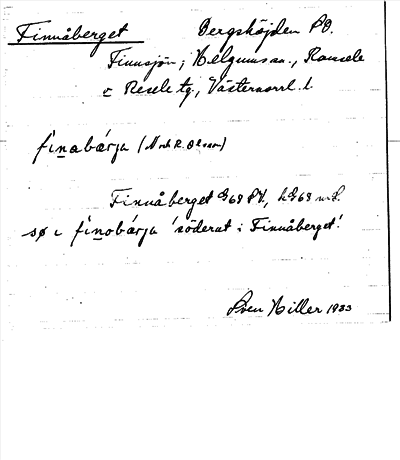 Finnåberget Bergshöjden PO.
Finnsjön; Helgums sn., Ramsele
o Resele tg., Västernorrl. l.
fi̱nabærja (Nork R. Olsson)
Finnåberget GS PX, h
sø i fi̱nobærja 'söderut i Finnåberget'.
Sven Hiller 1933